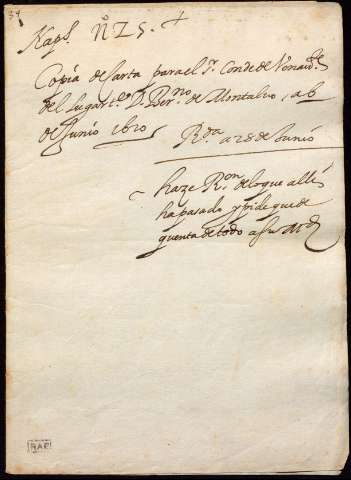 34
Kaps. nº Z5.
Copia de carta para el Sr. Conde de
del lugarte. D. Berno. de Montalvo, a 6
de Junio 1620
Rda a 28 de Junio
haze Ron. de lo que alli
ha pasado y pide que de
quenta de todo a su
RAE